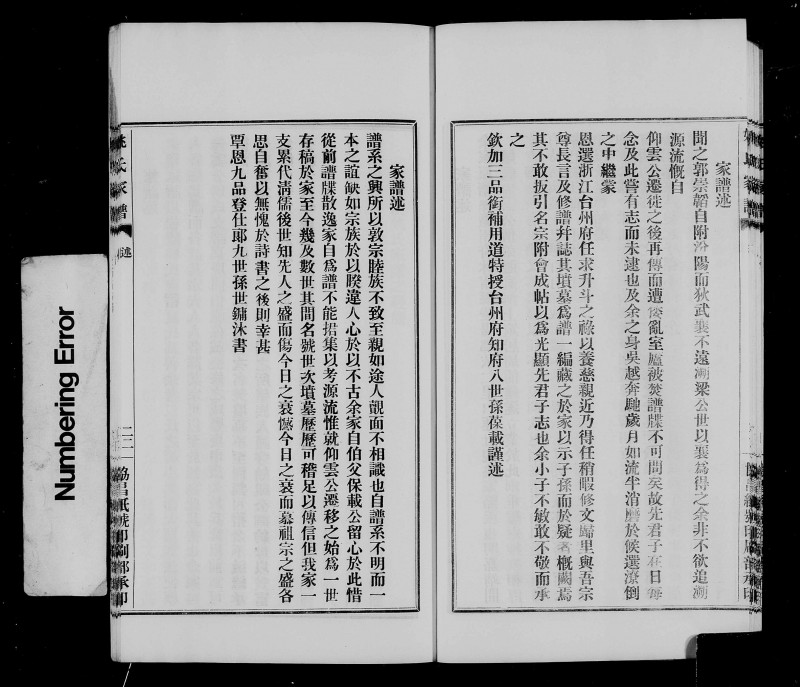 家譜述
聞之郭崇韜自附汾陽而狄武襄不遠溯梁公世以襄為得之余非不欲追溯
源流慨自
仰雲公遷徙之後再傳而遭亂室廬被焚譜牒不可問矣故先君子在日每
念及此嘗有志而未逮也及余之身吳越奔馳歲月如流半消磨於候選潦倒
之中繼蒙
恩選浙江台州府任求升斗之祿以養慈親近乃得任稍暇修文歸里與吾宗
尊長言及修譜幷誌其墳墓為譜一編藏之於家以示子孫而於疑者概闕焉
其不敢扳引名宗附會成帖以為光顯先君子志也余小子不敏敢不敬而承
之
欽加三品銜補用道特授台州府知府八世孫葆載謹述
家譜述
譜系之興所以敦宗睦族不致至親如途人覿面不相識也自譜系不明而一
本之誼缺如宗族於以睽違人心於以不古余家自伯父保載公留心於此惜
從前譜牒散逸家自為譜不能捃集以考源流惟就仰雲公遷移之始為一世
存稿於家至今幾及數世其間名號世次墳墓歷歷可稽足以傳信但我家一
支累代清儒後世知先人之盛而傷今日之衰慽今日之衰而慕祖宗之盛各
思自奮以無愧於詩書之後則幸甚
覃恩九品登仕郎九世孫世鏞沐書
姚氏家譜
述
二三
協昌紙號印刷部承印
Numbering Error